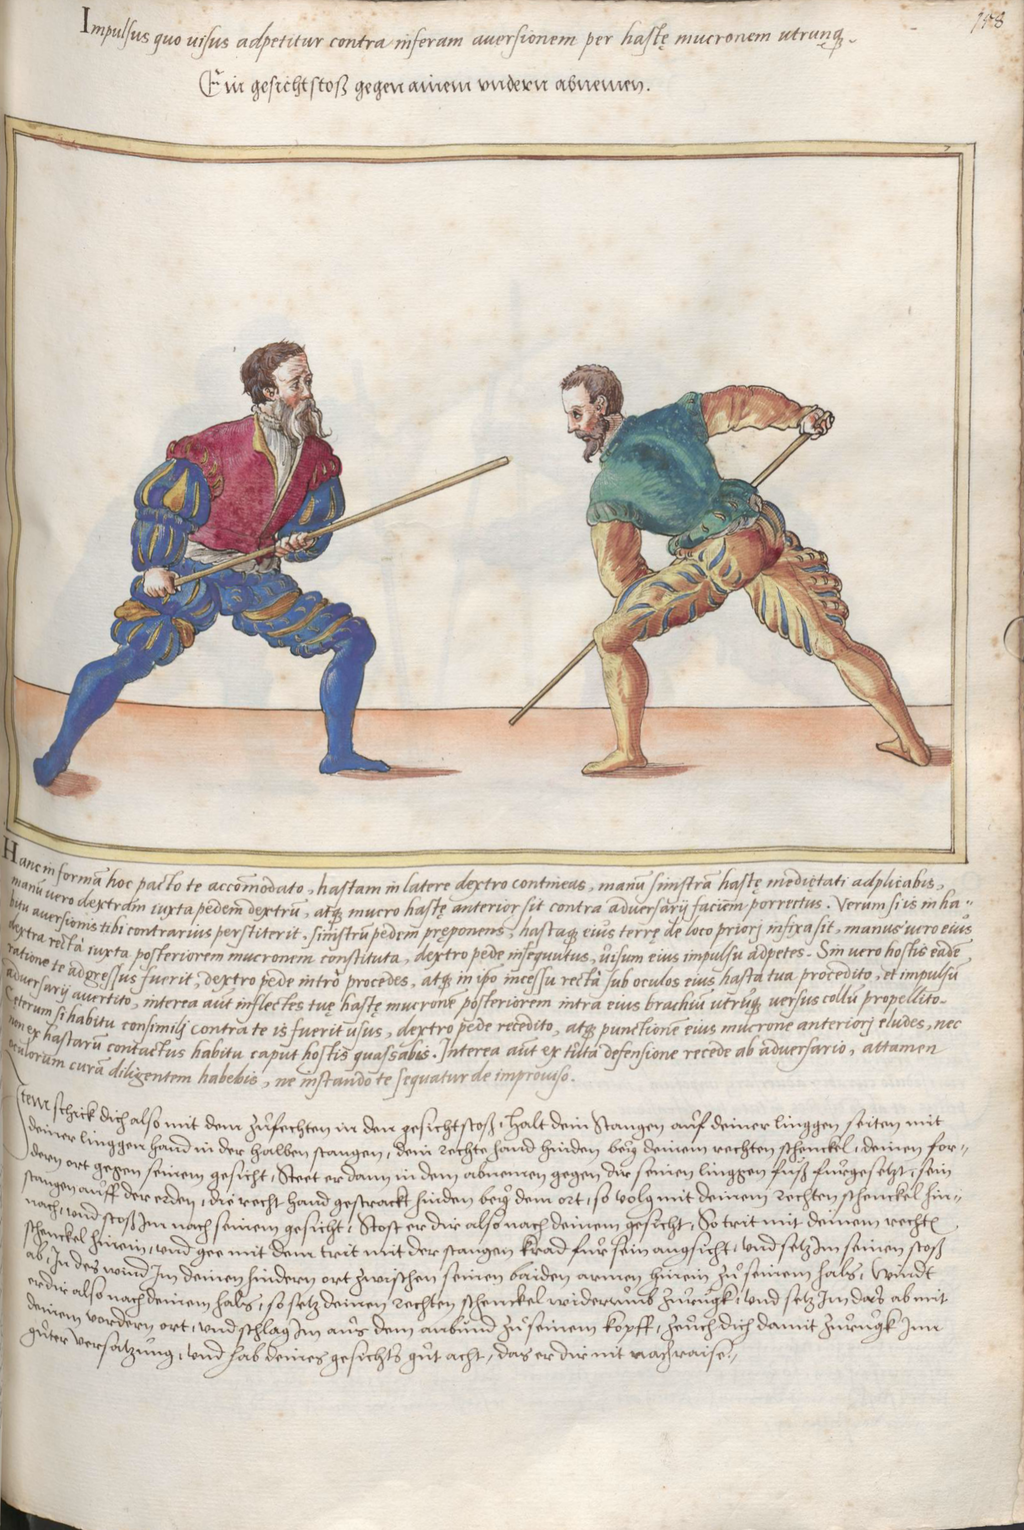 Impulsus quo uisus adpetitur contra inferam auersionem per hastę mucronem utrunq̨.
Ein gesichtstoß gegen ainem vndern abnemen.
Hanc in formã hoc pacto te accõmodato, hastam in latere dextro contineas, manu sinistrã hastę medietati adplicabis,
manũ uero dextram iuxta pedem dextrũ, atq̨ mucro hastę anterior sit contra aduersarij faciem porrectus. Verum si is in ha-
bitu auersionis tibi contrarius perstiterit, sinistrũ pedem pręponens, hastaq̨ eius terrę de loco priorj infixa sit, manus uero eius
dextra rectà iuxta posteriorem mucronem constituta, dextro pede insequutus, uisum eius impulsu adpetes. Sin uero hostis eadẽ
ratione te adgressus fuerit, dextro pede intrò procedes, atq̨ in ipo incessu rectà sub oculos eius hasta tua procedito, et impulsũ
aduersarij auertito, interea aũt inflectes tuę hastę mucronẽ posteriorem intra eius brachiũ utrũq̨ uersus collũ propellito.
Ceterum si habitu consimilj contra te is fuerit usus, dextro pede recedito, atq̨ punctionẽ eius mucrone anteriorj eludes, nec
non ex hastarũ contactus habitu caput hostis quassabis. Interea aũt ex tuta defensione recede ab aduersario, attamen
oculorum curã diligentem habebis, ne instando te sequatur de improuiso.
Item schick dich also mit dem zůfechten in den gesichtstoß, halt dein Stangen auf deiner linggen seiten mit
deiner linggen hand in der halben stangen, dein rechte hand hinden beÿ deinem rechten schenckel, deinen for-
dern ort gegen seinem gesicht, Steet er dann in dem abnemen gegen dir seinen linggen fuß fürgesetzt, sein
stangen auff der erden, die recht hand gestrackt hinden beÿ dem ort, so volg mit deinem rechten schenckel hin-
nach, und stoß Im nach seinem gesicht, Stost er dir also nach deinem gesicht, So trit mit deinem rechtẽ
schenckel hinein, und gee mit dem trit mit der stangen krad für sein angsicht, und setz Im seinen stoß
ab, In des wind Im deinen hindern ort zwischen seinen baiden armen hinein zů seinem hals, Windt
er dir also nach deinem hals, so setz deinen rechten schenckel widerumb zurugk, und setz Im das ab mit
deinem vordern ort, und schlag Im aus dem anbund zů seinem kopff, zeuch dich damit zurugk Inn
gůter versatzung, und hab deines gesichts gůt acht, das er dir nit nachraise.